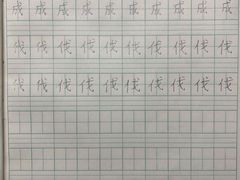 成 成 成 成 成 成 成 成 成 成
伐 伐 伐 伐 伐 伐 伐 伐 伐 伐
伐 伐 伐 伐 伐 伐 伐 伐 伐 伐